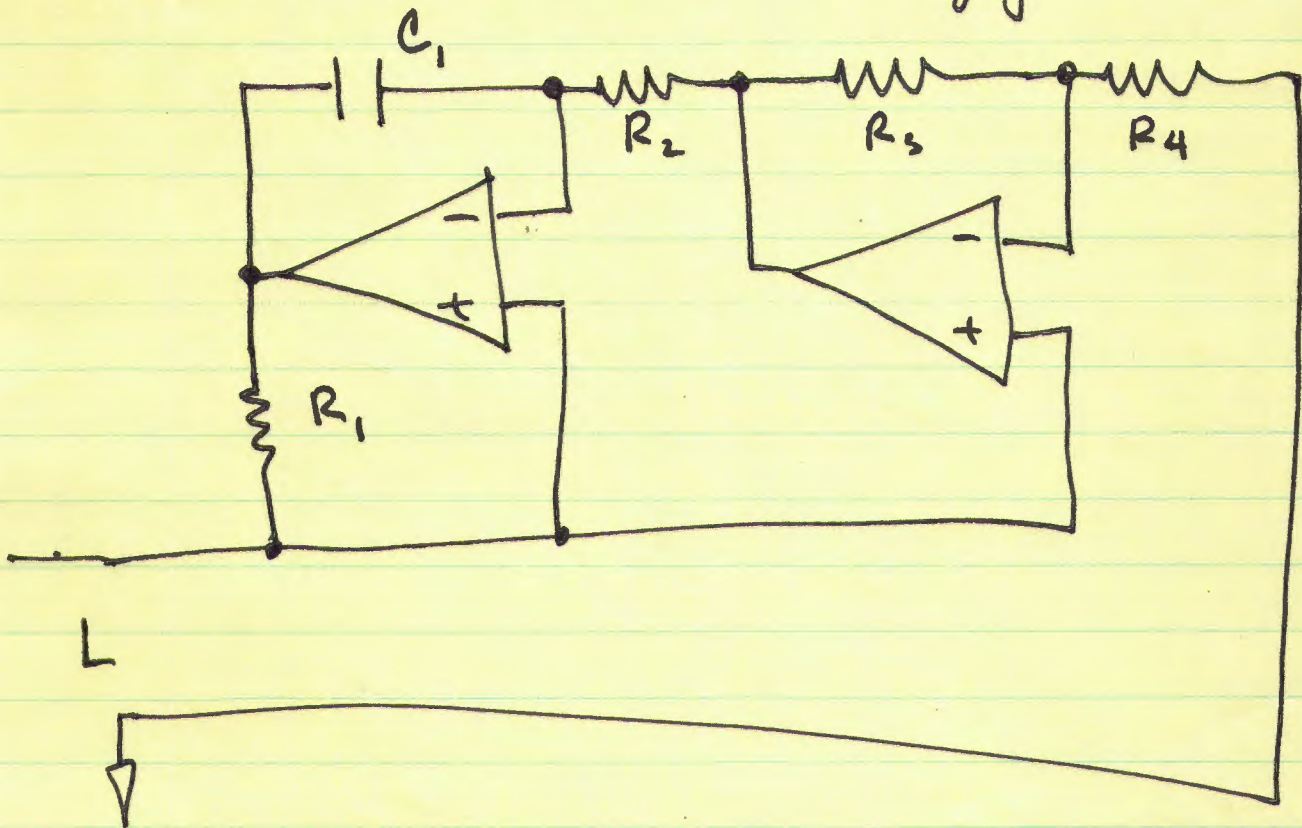 C1
R2
R3
R4
-
-
+
+
R1
L